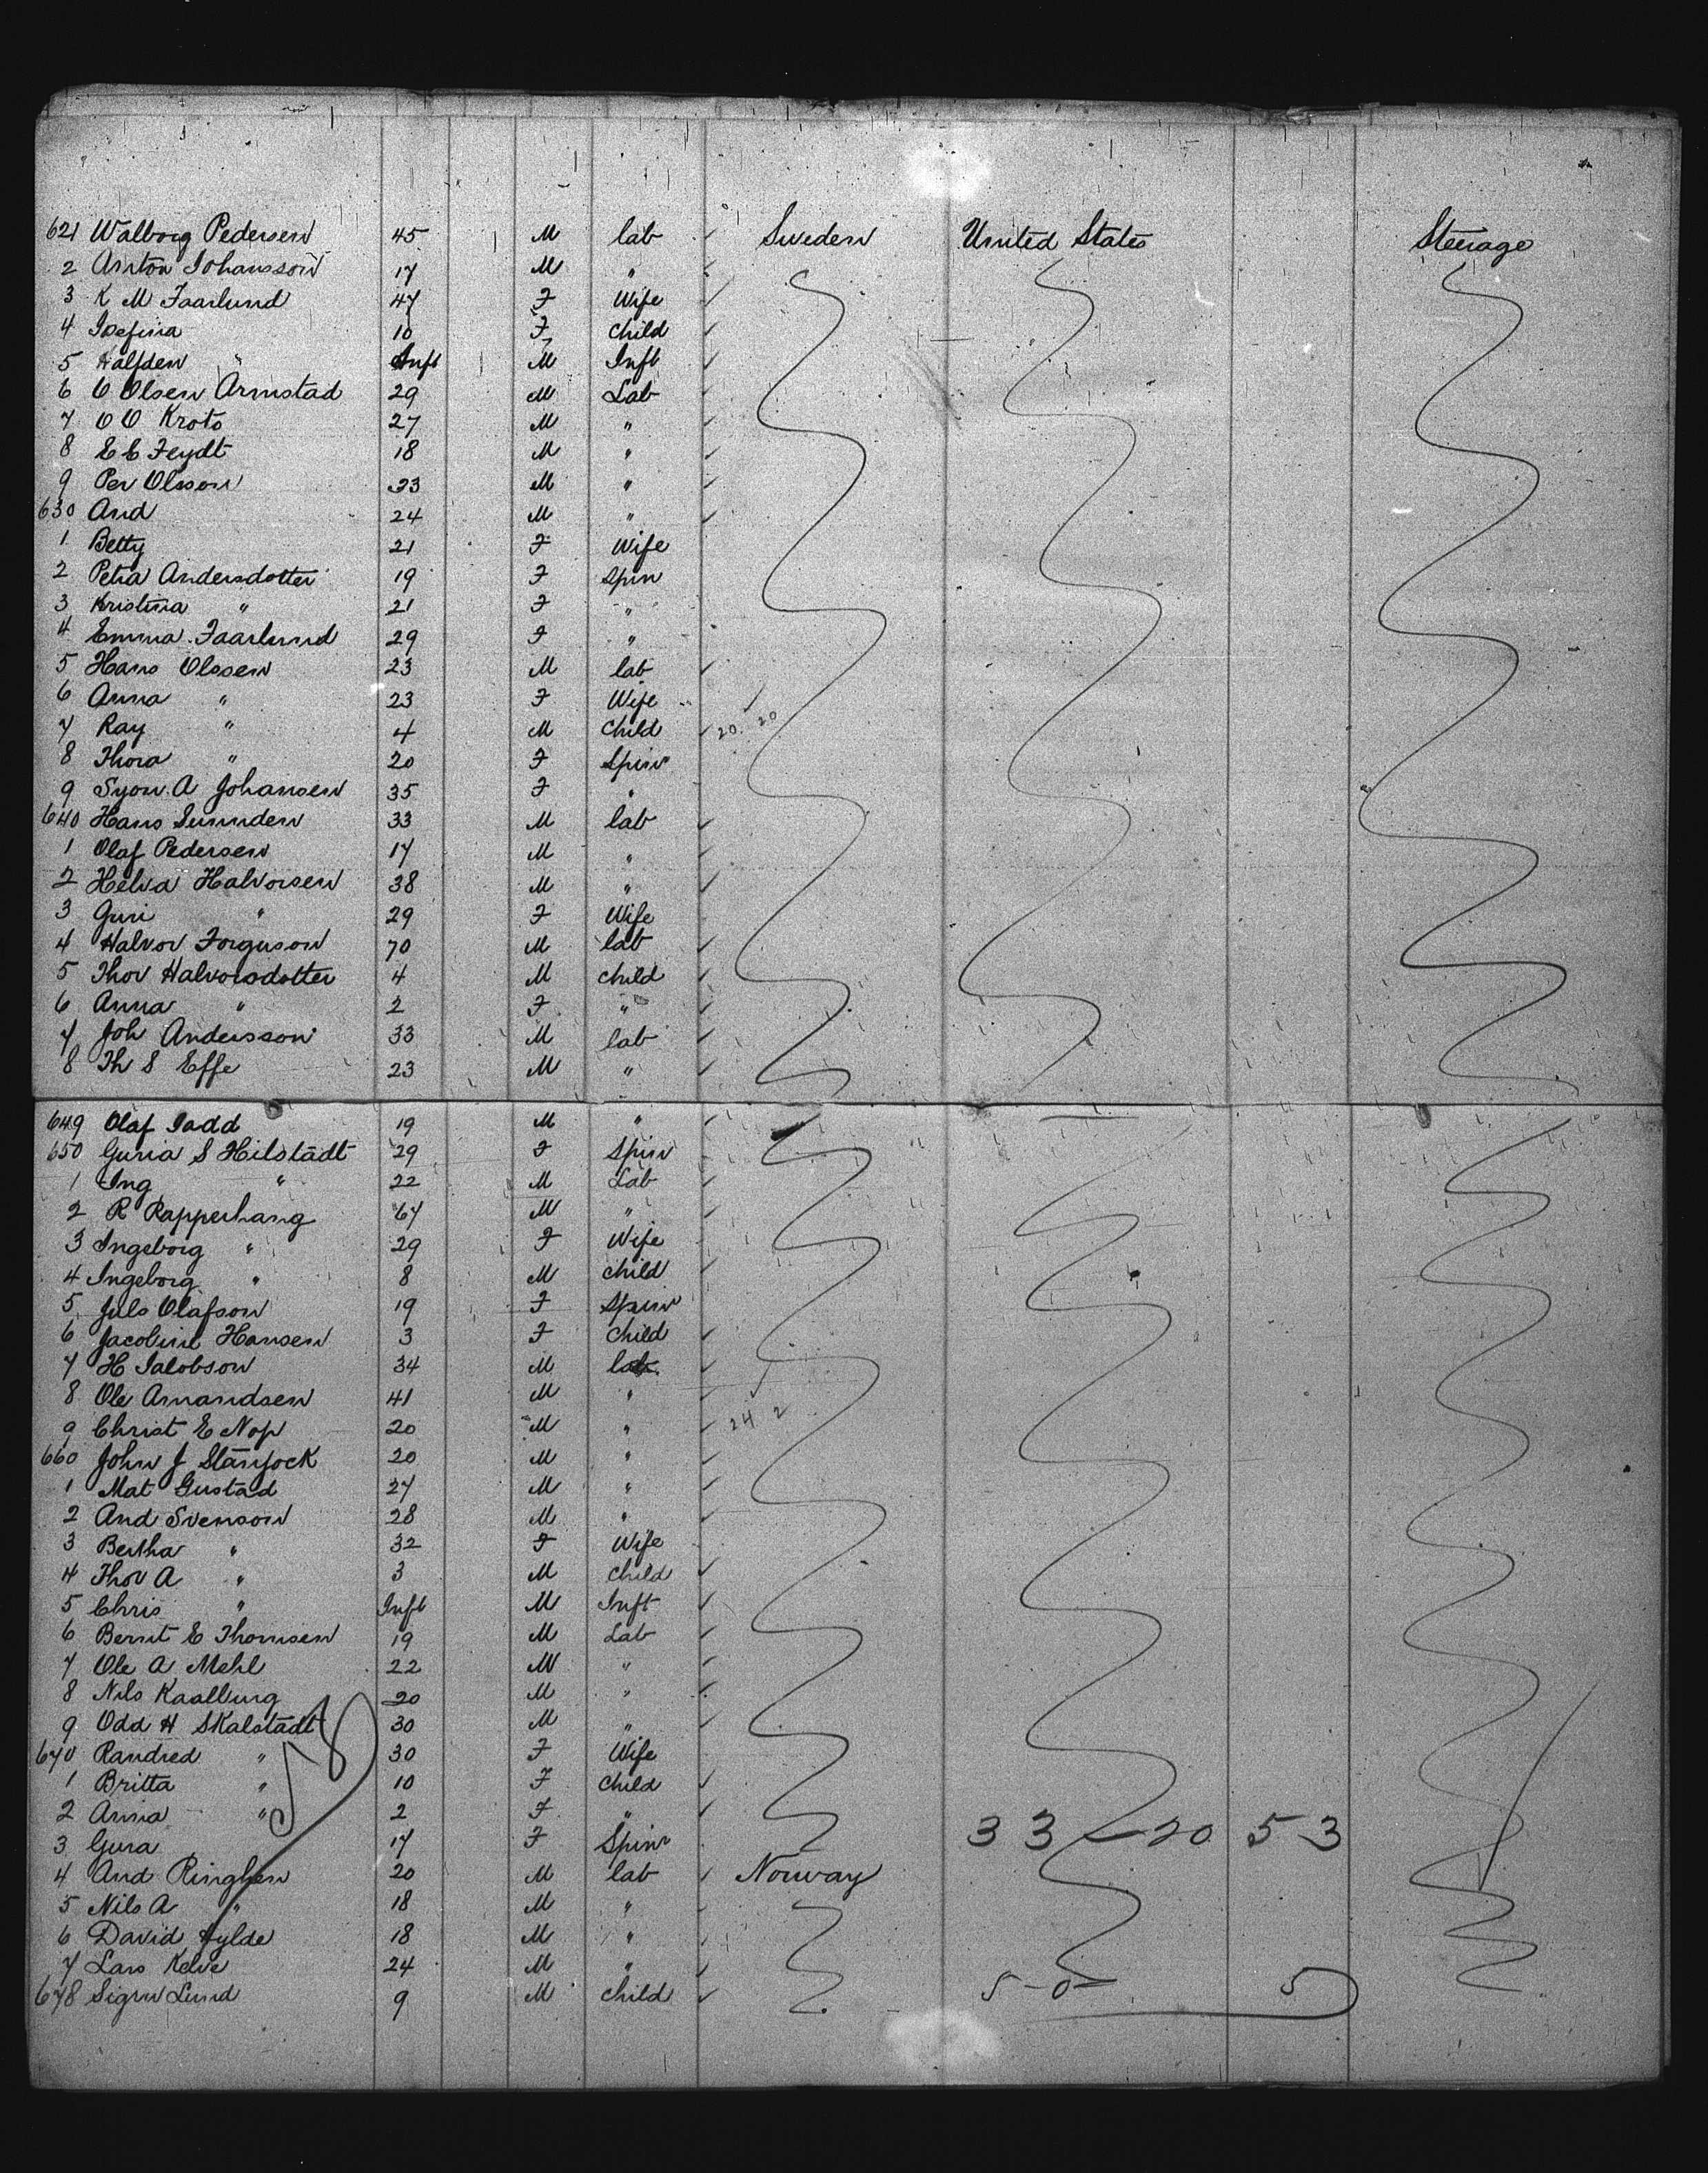 621 Walborg Pedersen 45 M lab Sweden United States Steerage
2 Anton Johansson 17 M "
3 K M Faarlund 47 F Wife
4 Josefina 10 F Child
5 Halfden " Inft M Inft
6 O Olsen Armstad 29 M Lab
7 O O Kroto 27 M "
8 E E Feydt 18 M "
9 Per Olsson 23 M "
630 And 24 M "
1 Betty 21 F Wife
2 Petra Andersdotter 19 F Spin
3 Kristina " 21 F "
4 Emma Faarlund 29 F "
5 Hans Olssen 23 M lab
6 Anna " 23 F Wife
7 Ray " 4 M Child 20 20
8 Thora " 20 F Spin
9 Syon A Johansen 35 F "
640 Hans Sunnden 33 M lab
1 Olaf Pedersen 17 M "
2 Helva Halvorsen 38 M "
3 Guri " 29 F Wife
4 Halvor Forguson 70 M lab
5 Thor Halvorsdotter 4 M Child
6 Anna " 2 F "
7 Joh Andersson 33 M lab
8 Th S Effe 23 M "
649 Olaf Jadd 19 M "
650 Guria S Hilstädt 29 F Spin
1 Ing " 22 M Lab
2 R Rapperhang 67 M "
3 Ingeborg " 29 F Wife
4 Ingeborg " 8 M Child
5 Juls Olafson 19 F Spin
6 Jacoline Hansen 3 F Child
7 H Jalobson 34 M lab
8 Ole Amandsen 41 M "
9 Christ E Nop 20 M " 24 2
660 John J Stanjock 20 M "
1 Mat Gustad 27 M "
2 And Svenson 28 M "
3 Bertha " 32 F Wife
4 Thor A " 3 M Child
5 Chris " Inft M Inft
6 Bernt E Thomsen 19 M Lab
7 Ole A Mehl 22 M "
8 Nils Kaalburg 20 M "
9 Odd H Skalstädt 30 M "
670 Randred " 30 F Wife
1 Britta " 10 F Child
2 Anna " 2 F "
3 Gura 17 F Spin 33 - 20 53
4 And Ringhen 20 M lab Norway
5 Nils A " 18 M "
6 David Hylde 18 M "
7 Lars Kelve 24 M "
678 Sigru Lund 9 M Child 5 - 0 - 5